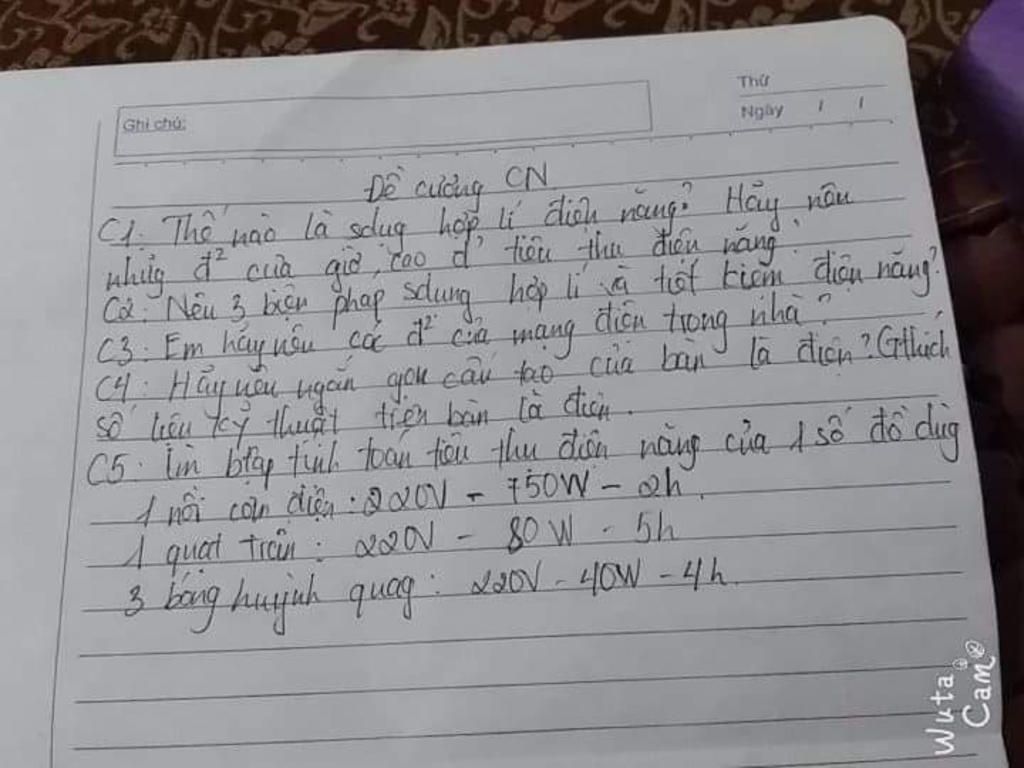 Thứ
Ngày / /
Ghi chú:
Đề cương CN
C1: Thế nào là sdug hợp lí điện năng? Hãy nêu
nhưg đ² của giờ cao đ' tiêu thụ điện năng.
C2: Nêu 3 biện pháp sdung hợp lí và tiết kiệm điện năng?
C3: Em hãy nêu các đ² của mạng điện trong nhà?
C4: Hãy nêu ngắn gọn cấu tạo của bàn là điện? Gthích
số liệu kỹ thuật trên bàn là điện.
C5: Lm btập tính toán tiêu thụ điện năng của 1 số đồ dùg
1 nồi cơm điện: 220V - 750W - 2h.
1 quạt trần: 220V - 80W - 5h
3 bóng huỳnh quag: 220V - 40W - 4h.
Wuta
Cam